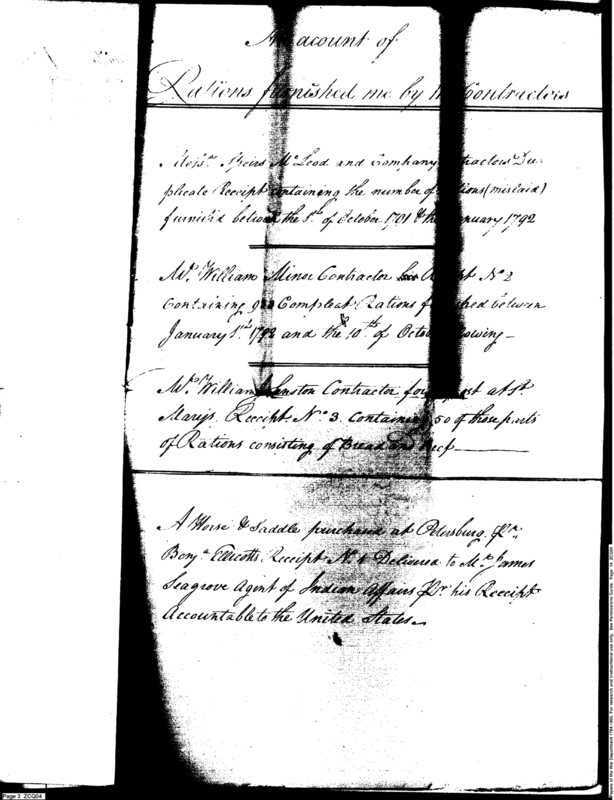 An account of
Rations furnished me by the Contractors
Mess.rs Speirs McLeod and Company Contractors Du-
plicate Receipt containing the number of Rations (mislaid)
furnish'd between the 1.st of October 1791 & the January 1792
Mr. William Minor Contractor Receipt No 2
Containing Compleat Rations furnished between
January 1.st 1792 and the 10th of October following—
Mr. William Johnston Contractor for at St.
Marys. Receipt No 3. Containing 50 of those parts
of Rations consisting of Bread and Beef
A Horse & Saddle purchased at Petersburg Pr.
Benj.a Ellicotts Receipt No. 4 Delivered to Mr. James
Seagrove Agent of Indian Affairs Pr. his Receipt
Accountable to the United States.
Page 3 ZCQ04